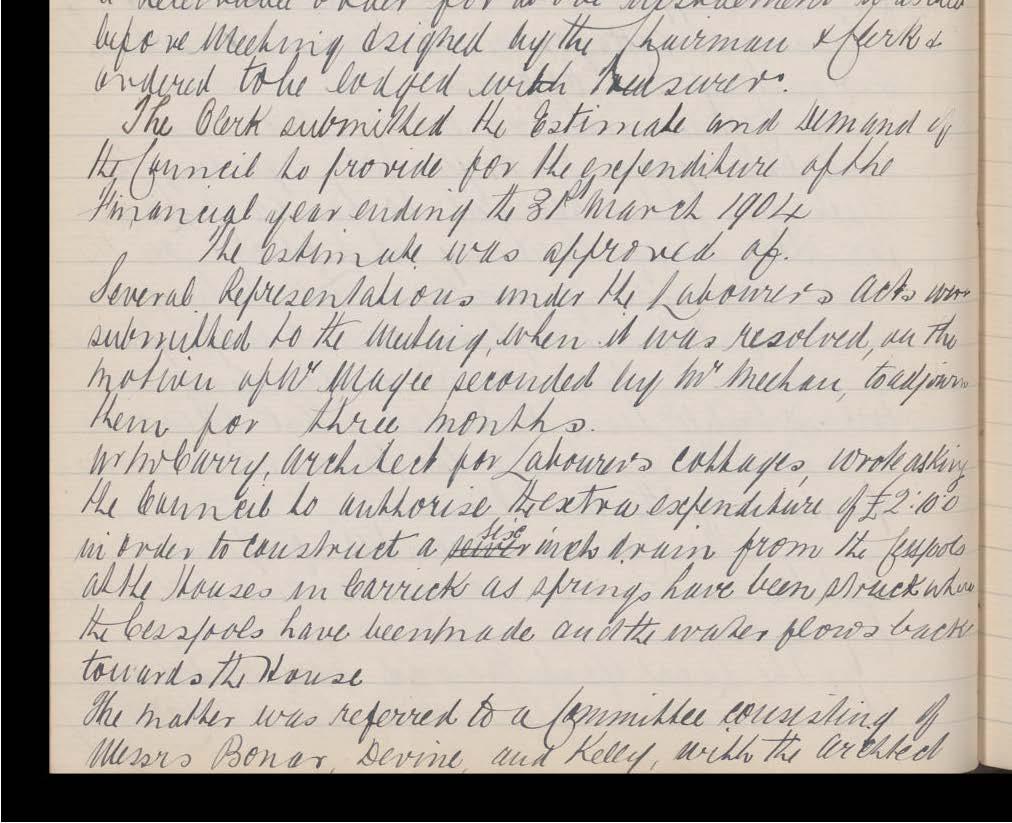 before Meeting & signed by the Chairman & Clerk &
ordered to be lodged with Treasurer.
The Clerk submitted the Estimate and Demand of
the Council to provide for the expenditure of the
Financial year ending the 31st March 1904
The estimate was approved of.
Several Representations under the Labourers Acts were
submitted to the Meeting, when it was resolved, on the
motion of Mr Magee seconded by Mr Meehan, to adjourn
them for three months.
Mr McCarry, Architect for Labourers cottages, wrote asking
the Council to authorise the extra expenditure of £2:10:0
in order to construct a six inch drain from the Cesspools
at the Houses in Carrick as springs have been struck where
the Cesspools have been made and the water flows back
towards the House
The matter was referred to a Committee consisting of
Messrs Bonar, Devine, and Kelly, with the Architect